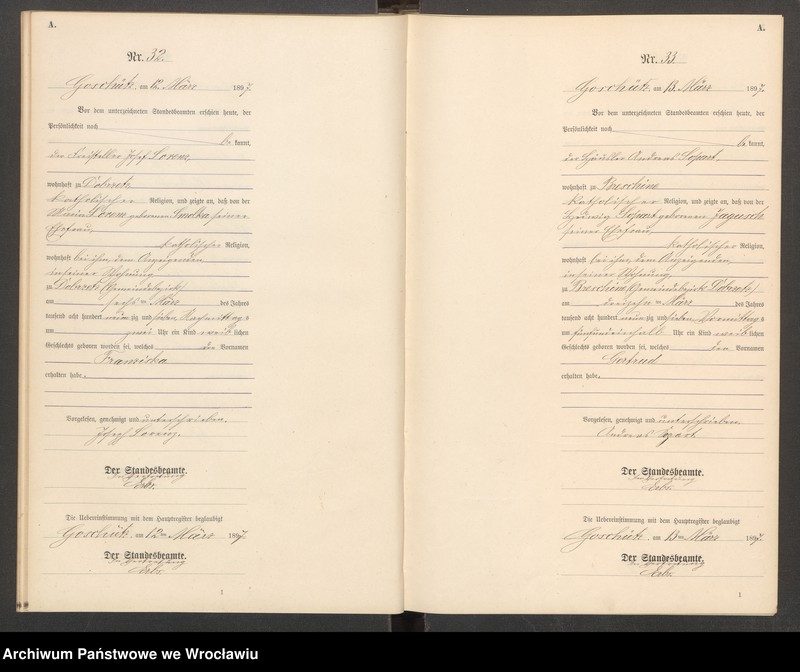 A.
Nr. 32.
Goschütz, am 12. März 1897.
Vor dem unterzeichneten Standesbeamten erschien heute, der
Persönlichkeit nach
be kannt,
der Freisteller Josef Lorenz,
wohnhaft zu Dobretz
katholischer Religion, und zeigte an, daß von der
Maria Lorenz geborenen Smolka seiner
Ehefrau,
katholischer Religion,
wohnhaft bei ihm, dem Anzeigenden
in seiner Wohnung
zu Dobretz (Gemeindebezirk)
am sechs ten März des Jahres
tausend acht hundert neun zig und sieben Nachmittags
um zwei Uhr ein Kind weib lichen
Geschlechts geboren worden sei, welches den Vornamen
Franziska
erhalten habe.
Vorgelesen, genehmigt und unterschrieben.
Joseph Lorenz.
Der Standesbeamte.
In Vertretung
Die Uebereinstimmung mit dem Hauptregister beglaubigt
Goschütz, am 12ten März 1897.
Der Standesbeamte.
In Vertretung
1
A.
Nr. 33.
Goschütz, am 13. März 1897.
Vor dem unterzeichneten Standesbeamten erschien heute, der
Persönlichkeit nach
be kannt,
der Häusler Andreas
wohnhaft zu
katholischer Religion, und zeigte an, daß von der
Hedwig geborenen Jagusch
seiner Ehefrau,
katholischer Religion,
wohnhaft bei ihm, dem Anzeigenden
in seiner Wohnung
zu (Gemeindebezirk Dobretz)
am dreizehn ten März des Jahres
tausend acht hundert neun zig und sieben Vormittags
um Uhr ein Kind weib lichen
Geschlechts geboren worden sei, welches den Vornamen
Gertrud
erhalten habe.
Vorgelesen, genehmigt und unterschrieben
Andreas
Der Standesbeamte.
In Vertretung
Die Uebereinstimmung mit dem Hauptregister beglaubigt
Goschütz, am 13ten März 1897.
Der Standesbeamte.
In Vertretung
1
Archiwum Państwowe we Wrocławiu